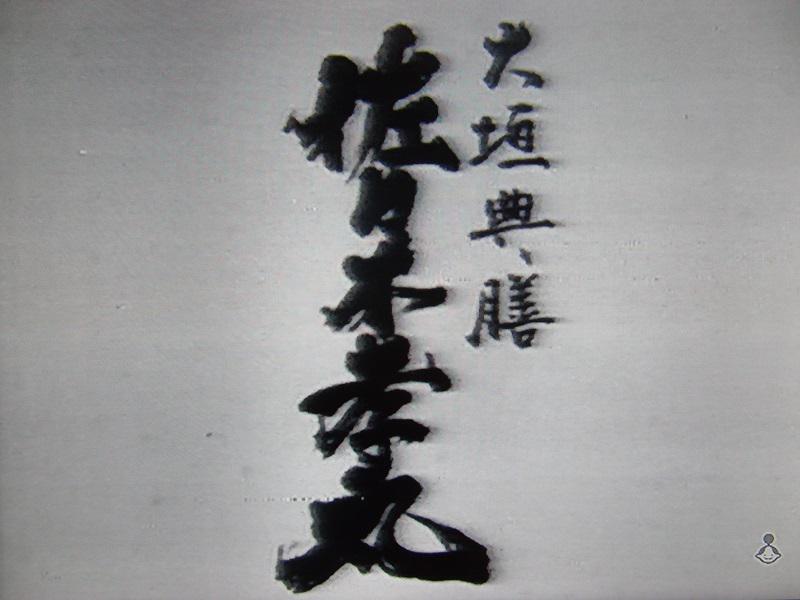 大垣典膳
佐々木孝丸